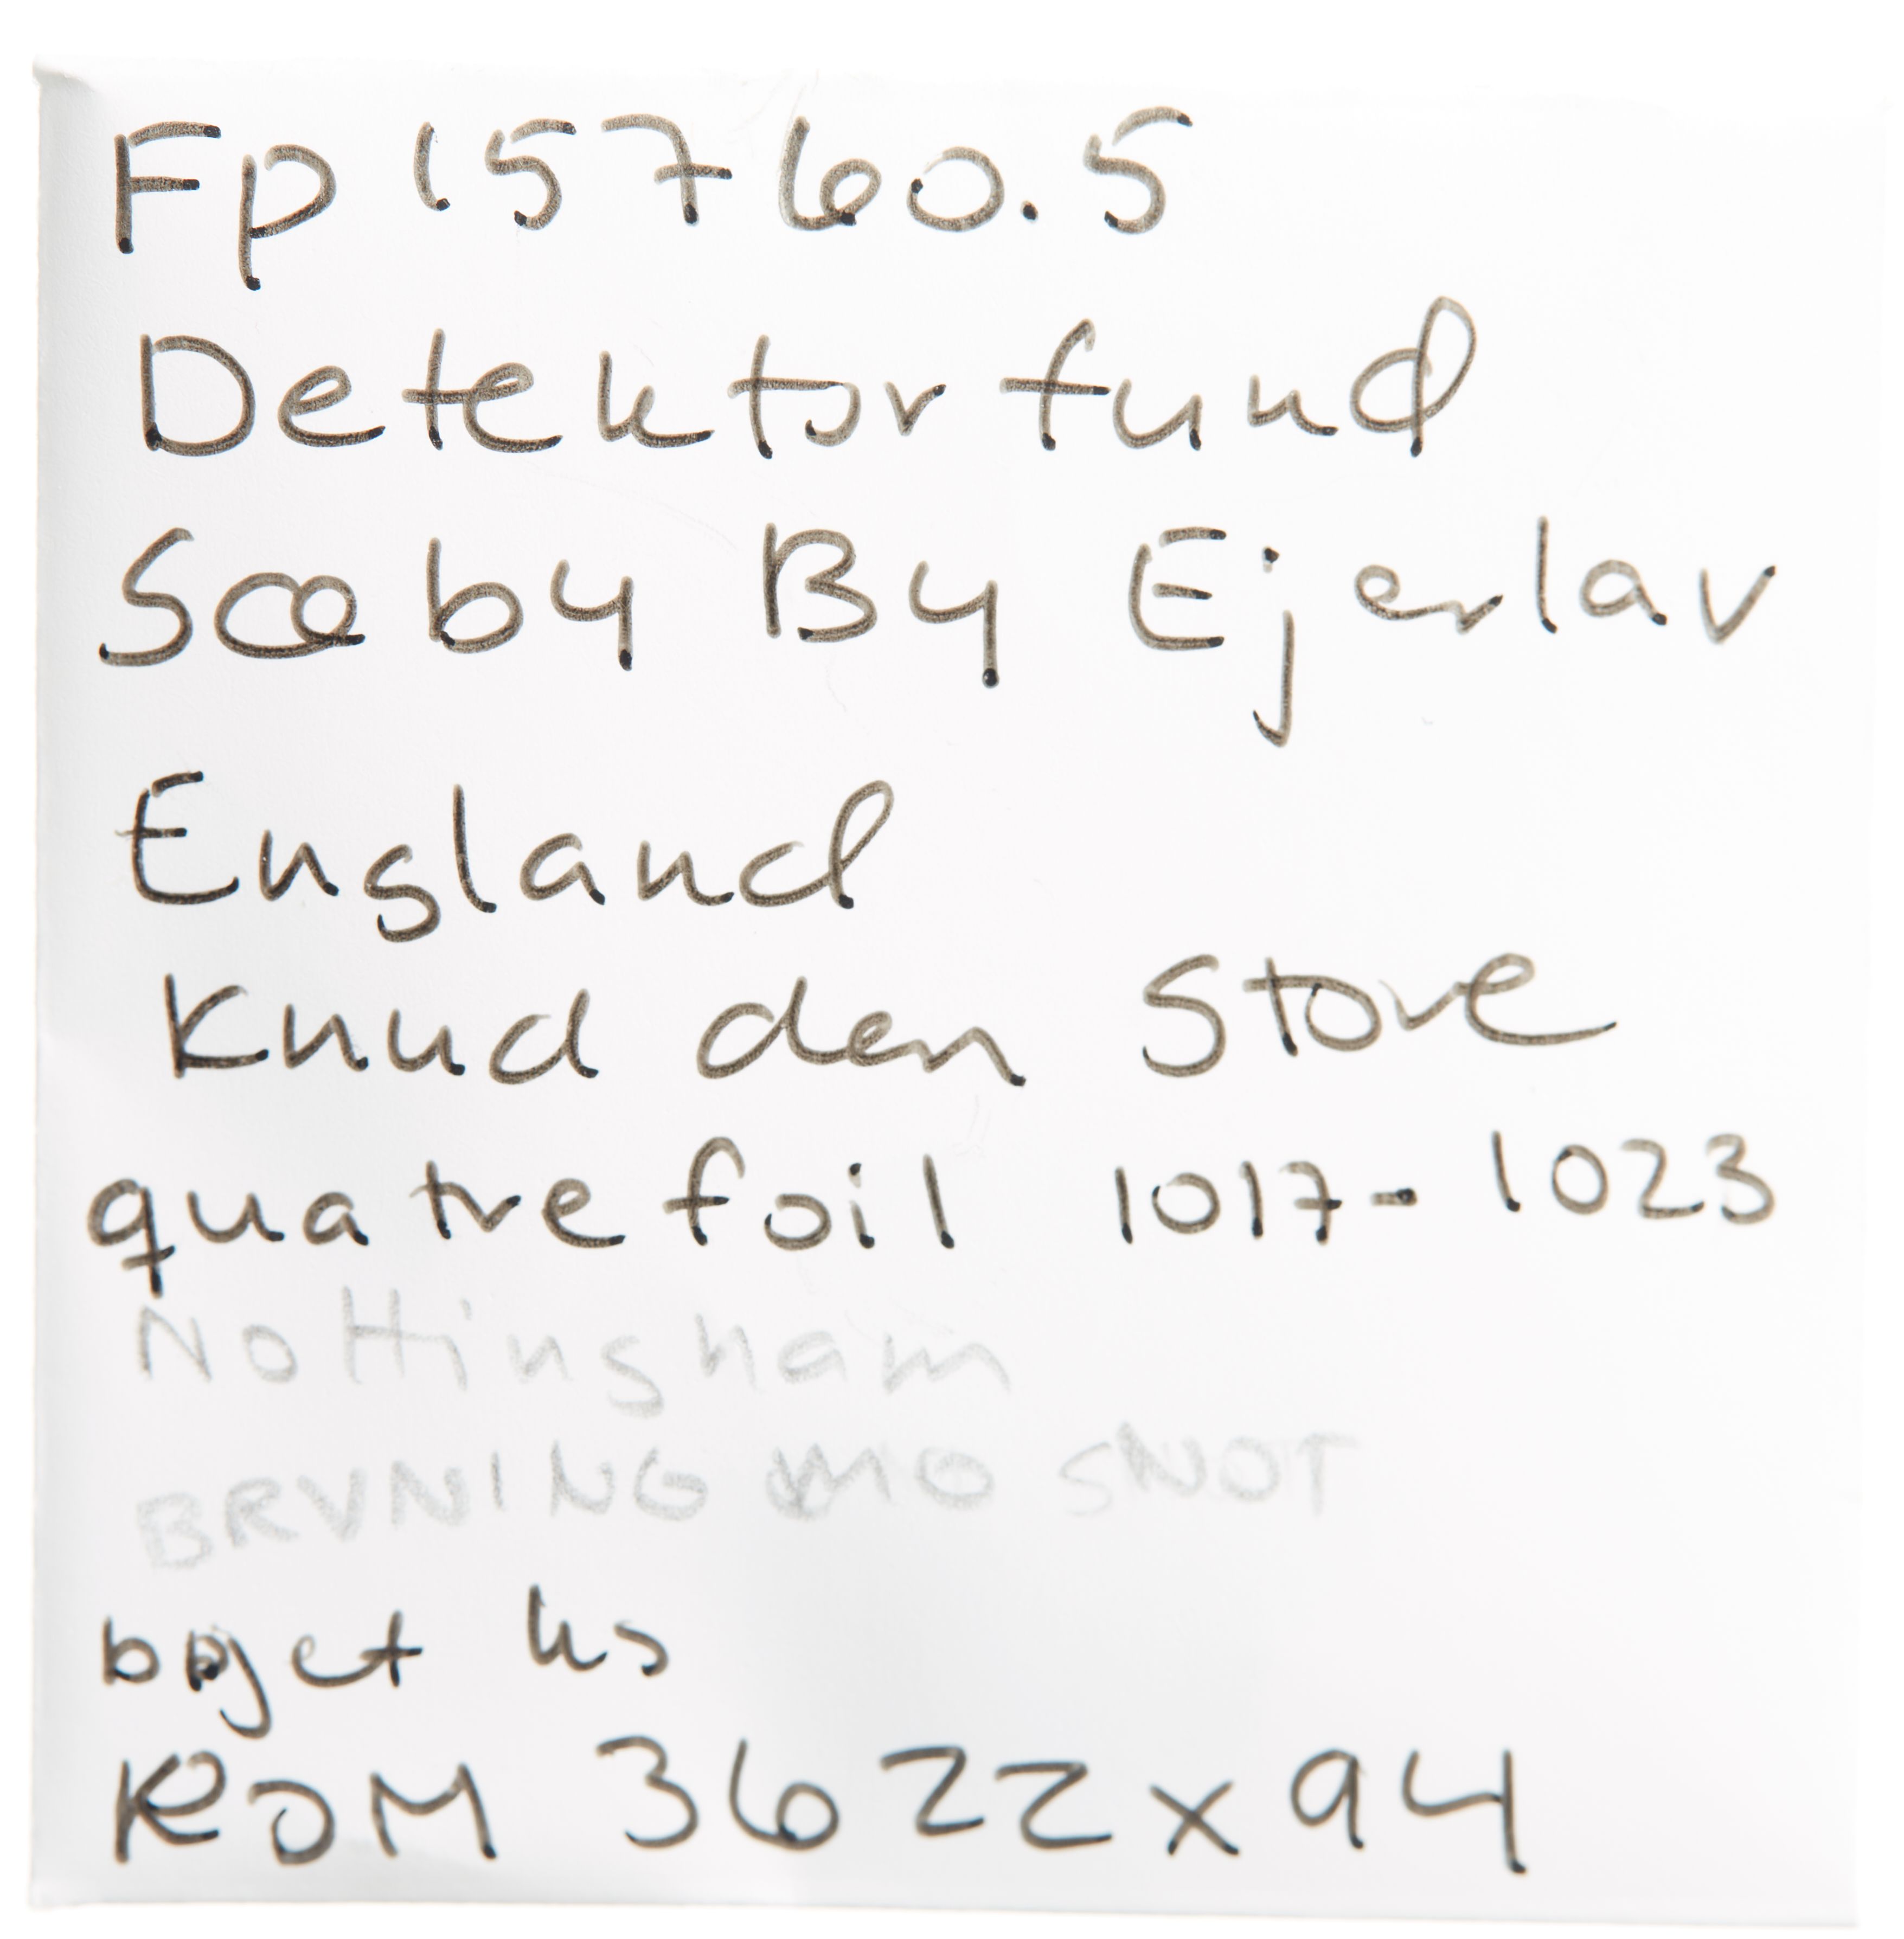 Fp 15760.5
Detektorfund
Sæby By Ejerlav
England
Knud den Store
quatrefoil 1017-1023
Nottingham
BRVNING MO SNOT
bøjet ks
ROM 3622x94